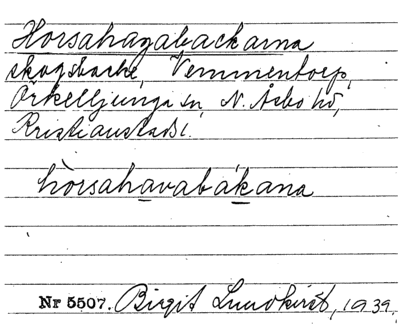 Horsahagabackarna
skogsbacke, Vemmentorp,
Örkelljunga sn, N. Åsbo hd,
Kristianstads l.
hòrsahavabákana
Nr 5507. Birgit Lundkvist, 1939.